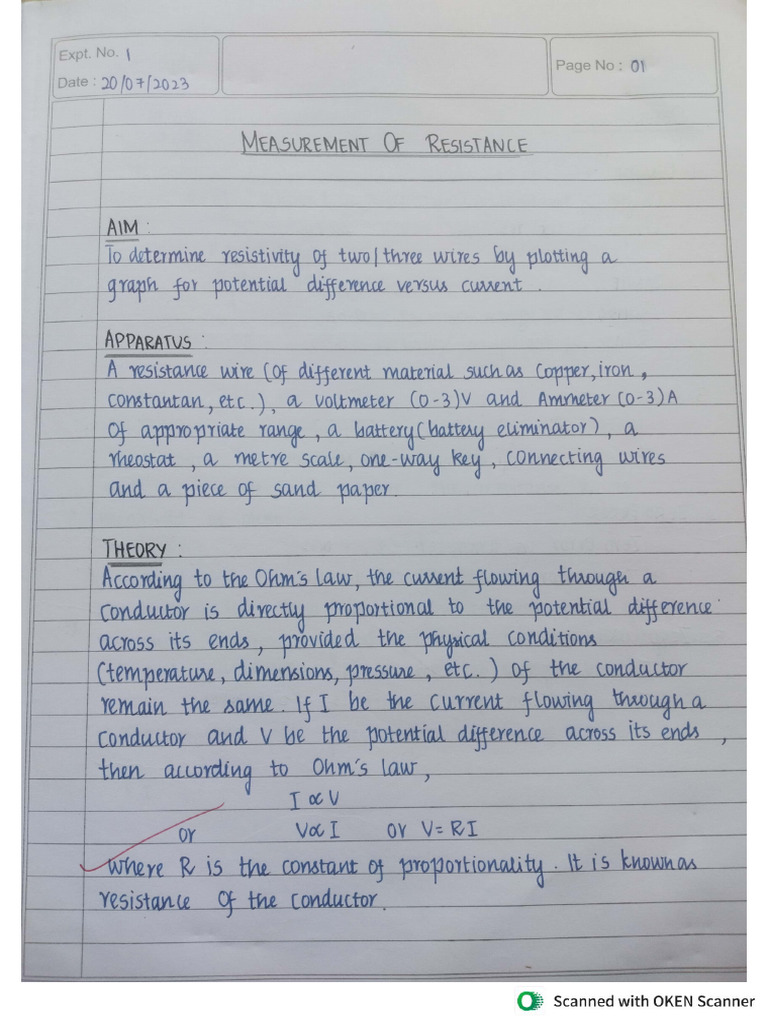 Expt. No. 1
Date : 20/07/2023
Page No : 01
MEASUREMENT OF RESISTANCE
AIM :
To determine resistivity of two/three wires by plotting a
graph for potential difference versus current.
APPARATUS :
A resistance wire (of different material such as Copper, iron,
constantan, etc.), a voltmeter (0-3)V and Ammeter (0-3)A
of appropriate range, a battery (battery eliminator), a
rheostat, a metre scale, one-way key, connecting wires
and a piece of sand paper.
THEORY :
According to the Ohm's law, the current flowing through a
conductor is directly proportional to the potential difference
across its ends, provided the physical conditions
(temperature, dimensions, pressure, etc.) of the conductor
remain the same. If I be the current flowing through a
conductor and V be the potential difference across its ends,
then according to Ohm's law,
I ∝ V
or V∝ I or V = RI
where R is the constant of proportionality. It is known as
resistance of the conductor.
Scanned with OKEN Scanner